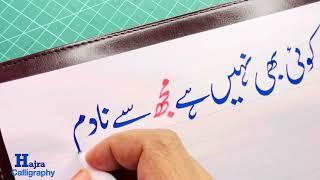 کوئی بھی نہیں ہے تجھ سے نادم
Hajra
Calligraphy